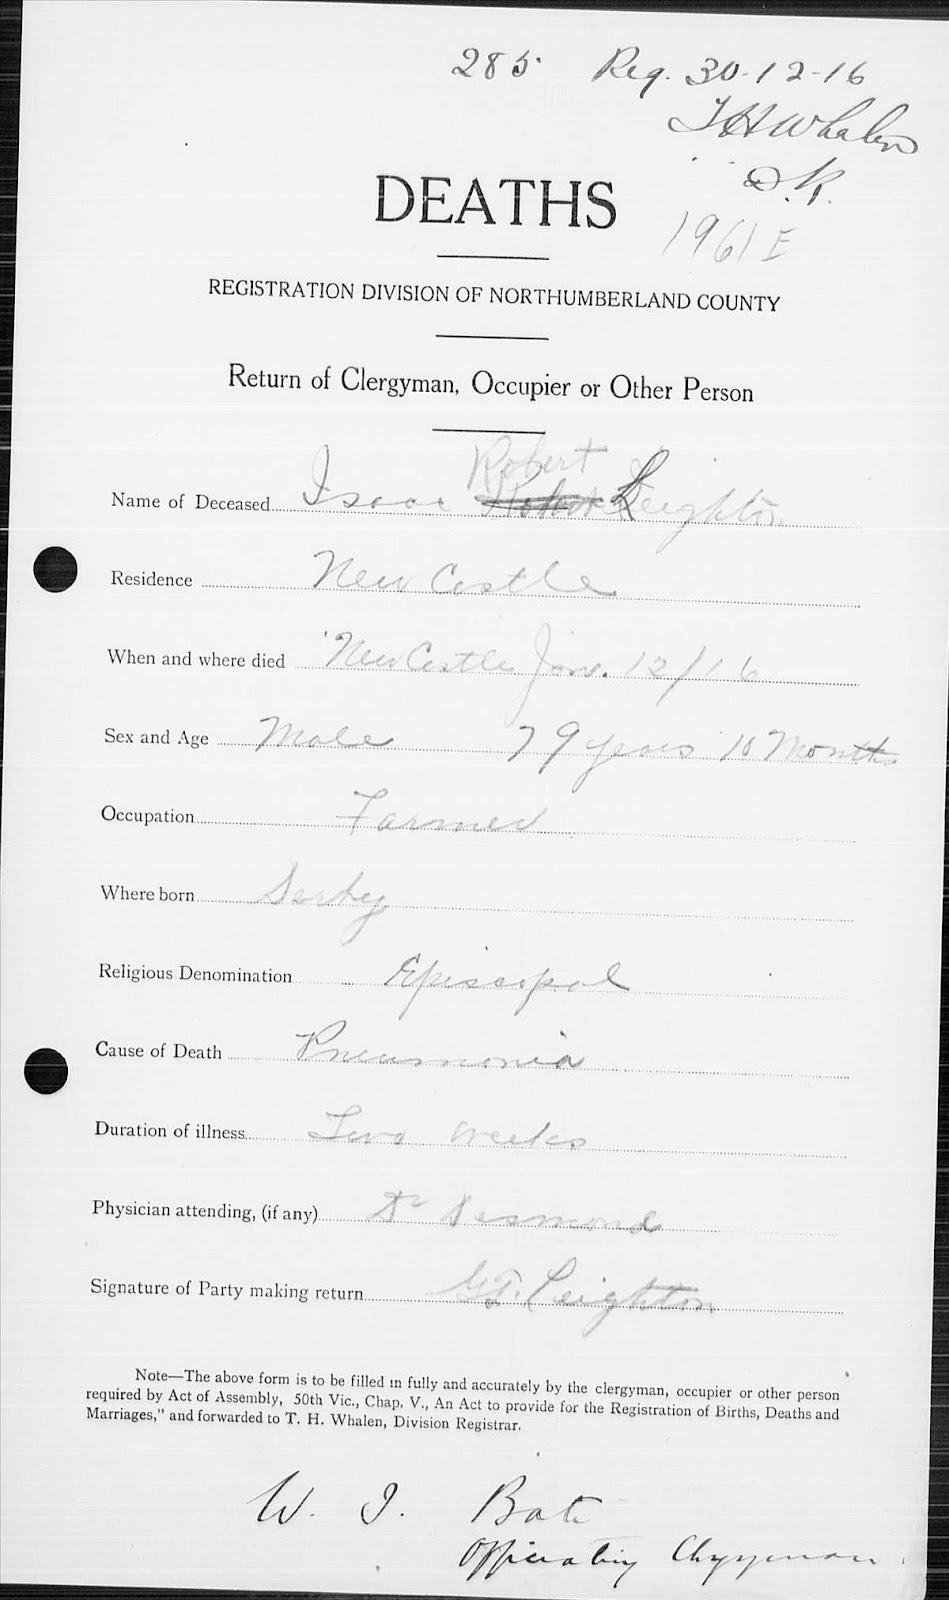 285 Reg. 30-12-16
T H Whalen
D.R.
DEATHS
1961 E
REGISTRATION DIVISION OF NORTHUMBERLAND COUNTY
Return of Clergyman, Occupier or Other Person
Robert
Name of Deceased Isaac Leighton
Residence New Castle
When and where died New Castle Jan. 12/16
Sex and Age Male 79 years 10 Months
Occupation Farmer
Where born Derby
Religious Denomination Episcopal
Cause of Death Pneumonia
Duration of illness Two weeks
Physician attending, (if any) Dr Desmond
Signature of Party making return G T. Leighton
Note—The above form is to be filled in fully and accurately by the clergyman, occupier or other person
required by Act of Assembly, 50th Vic., Chap. V., An Act to provide for the Registration of Births, Deaths and
Marriages," and forwarded to T. H. Whalen, Division Registrar.
W. J. Bate
Officiating Clergyman